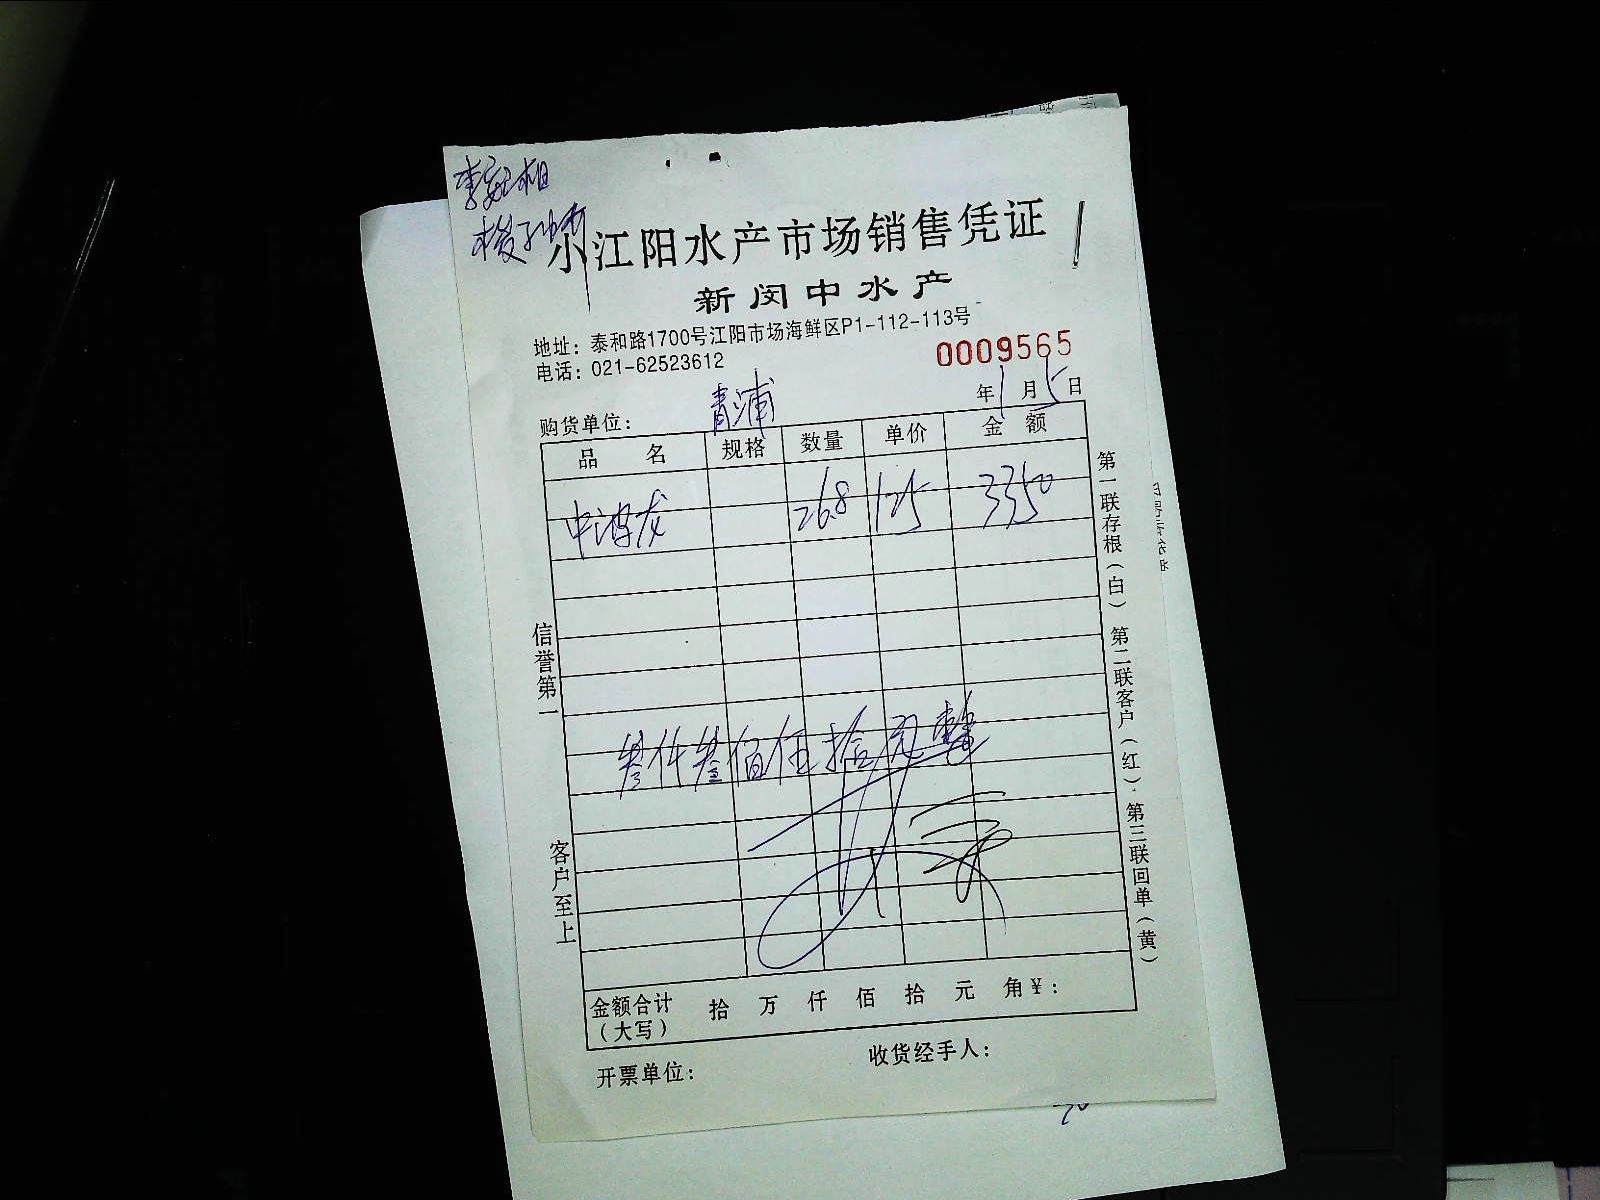 小江阳水产市场销售凭证
新闵中水产
地址：泰和路1700号江阳市场海鲜区P1-112-113号
电话：021-62523612
0009565
年1月5日
购货单位：青浦
品名 规格 数量 单价 金额
中波龙 26.8 125 3350
叁仟叁佰伍拾元整
金额合计（大写） 拾 万 仟 佰 拾 元 角￥：
开票单位： 收货经手人：
信誉第一
客户至上
第一联存根（白）第二联客户（红）第三联回单（黄）